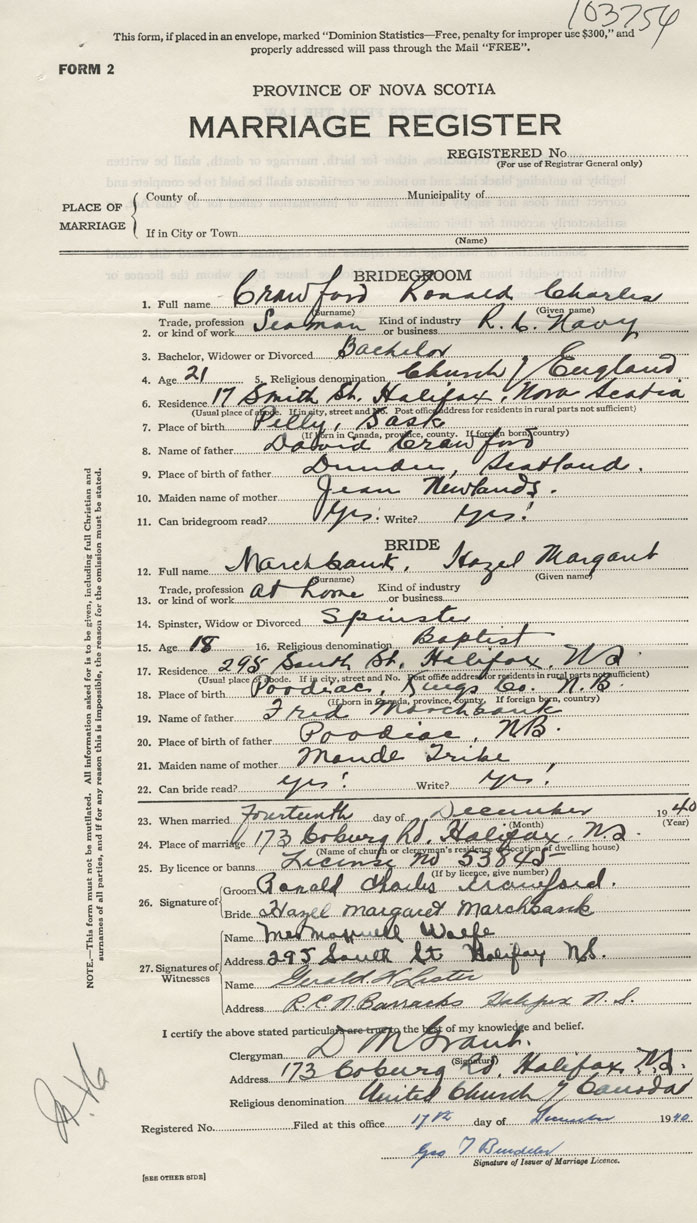 103754
This form, if placed in an envelope, marked "Dominion Statistics—Free, penalty for improper use $300," and
properly addressed will pass through the Mail "FREE".
FORM 2
PROVINCE OF NOVA SCOTIA
MARRIAGE REGISTER
REGISTERED No.
(For use of Registrar General only)
PLACE OF MARRIAGE
County of Municipality of
If in City or Town
(Name)
BRIDEGROOM
1. Full name Crawford Ronald Charles
(Surname) (Given name)
2. Trade, profession or kind of work Seaman Kind of industry or business R. C. Navy
3. Bachelor, Widower or Divorced Bachelor
4. Age 21 5. Religious denomination Church of England
6. Residence 17 Smith St. Halifax, Nova Scotia
(Usual place of abode. If in city, street and No. Post office address for residents in rural parts not sufficient)
7. Place of birth Pelly, Sask
(If born in Canada, province, county. If foreign born, country)
8. Name of father David Crawford
9. Place of birth of father Dundee, Scotland.
10. Maiden name of mother Jean Newlands.
11. Can bridegroom read? Yes! Write? Yes!
BRIDE
12. Full name Marchbank, Hazel Margaret
(Surname) (Given name)
13. Trade, profession or kind of work at home Kind of industry or business
14. Spinster, Widow or Divorced Spinster
15. Age 18 16. Religious denomination Baptist
17. Residence 295 South St. Halifax, N.S.
(Usual place of abode. If in city, street and No. Post office address for residents in rural parts not sufficient)
18. Place of birth Poodiac, Kings Co. N.B.
(If born in Canada, province, county. If foreign born, country)
19. Name of father Fred Marchbank
20. Place of birth of father Poodiac, N.B.
21. Maiden name of mother Maude Tribe
22. Can bride read? Yes! Write? Yes!
23. When married Fourteenth day of December 1940
(Month) (Year)
24. Place of marriage 173 Coburg Rd, Halifax, N.S.
(Name of church or clergyman's residence or location of dwelling house)
25. By licence or banns License No 53845
(If by licence, give number)
26. Signature of
Groom Ronald Charles Crawford.
Bride Hazel Margaret Marchbank
27. Signatures of Witnesses
Name Mrs Maxwell Wolfe
Address 295 South St Halifax N.S.
Name Gerald. Lester
Address R.C.N. Barracks Halifax N. S.
I certify the above stated particulars are true to the best of my knowledge and belief.
Clergyman D M Grant.
(Signature)
Address 173 Coburg Rd, Halifax, N.S.
Religious denomination United Church of Canada
Registered No. Filed at this office 17th day of December 1940
Geo
Signature of Issuer of Marriage Licence.
[SEE OTHER SIDE]
NOTE.—This form must not be mutilated. All information asked for is to be given, including full Christian and
surnames of all parties, and if for any reason this is impossible, the reason for the omission must be stated.